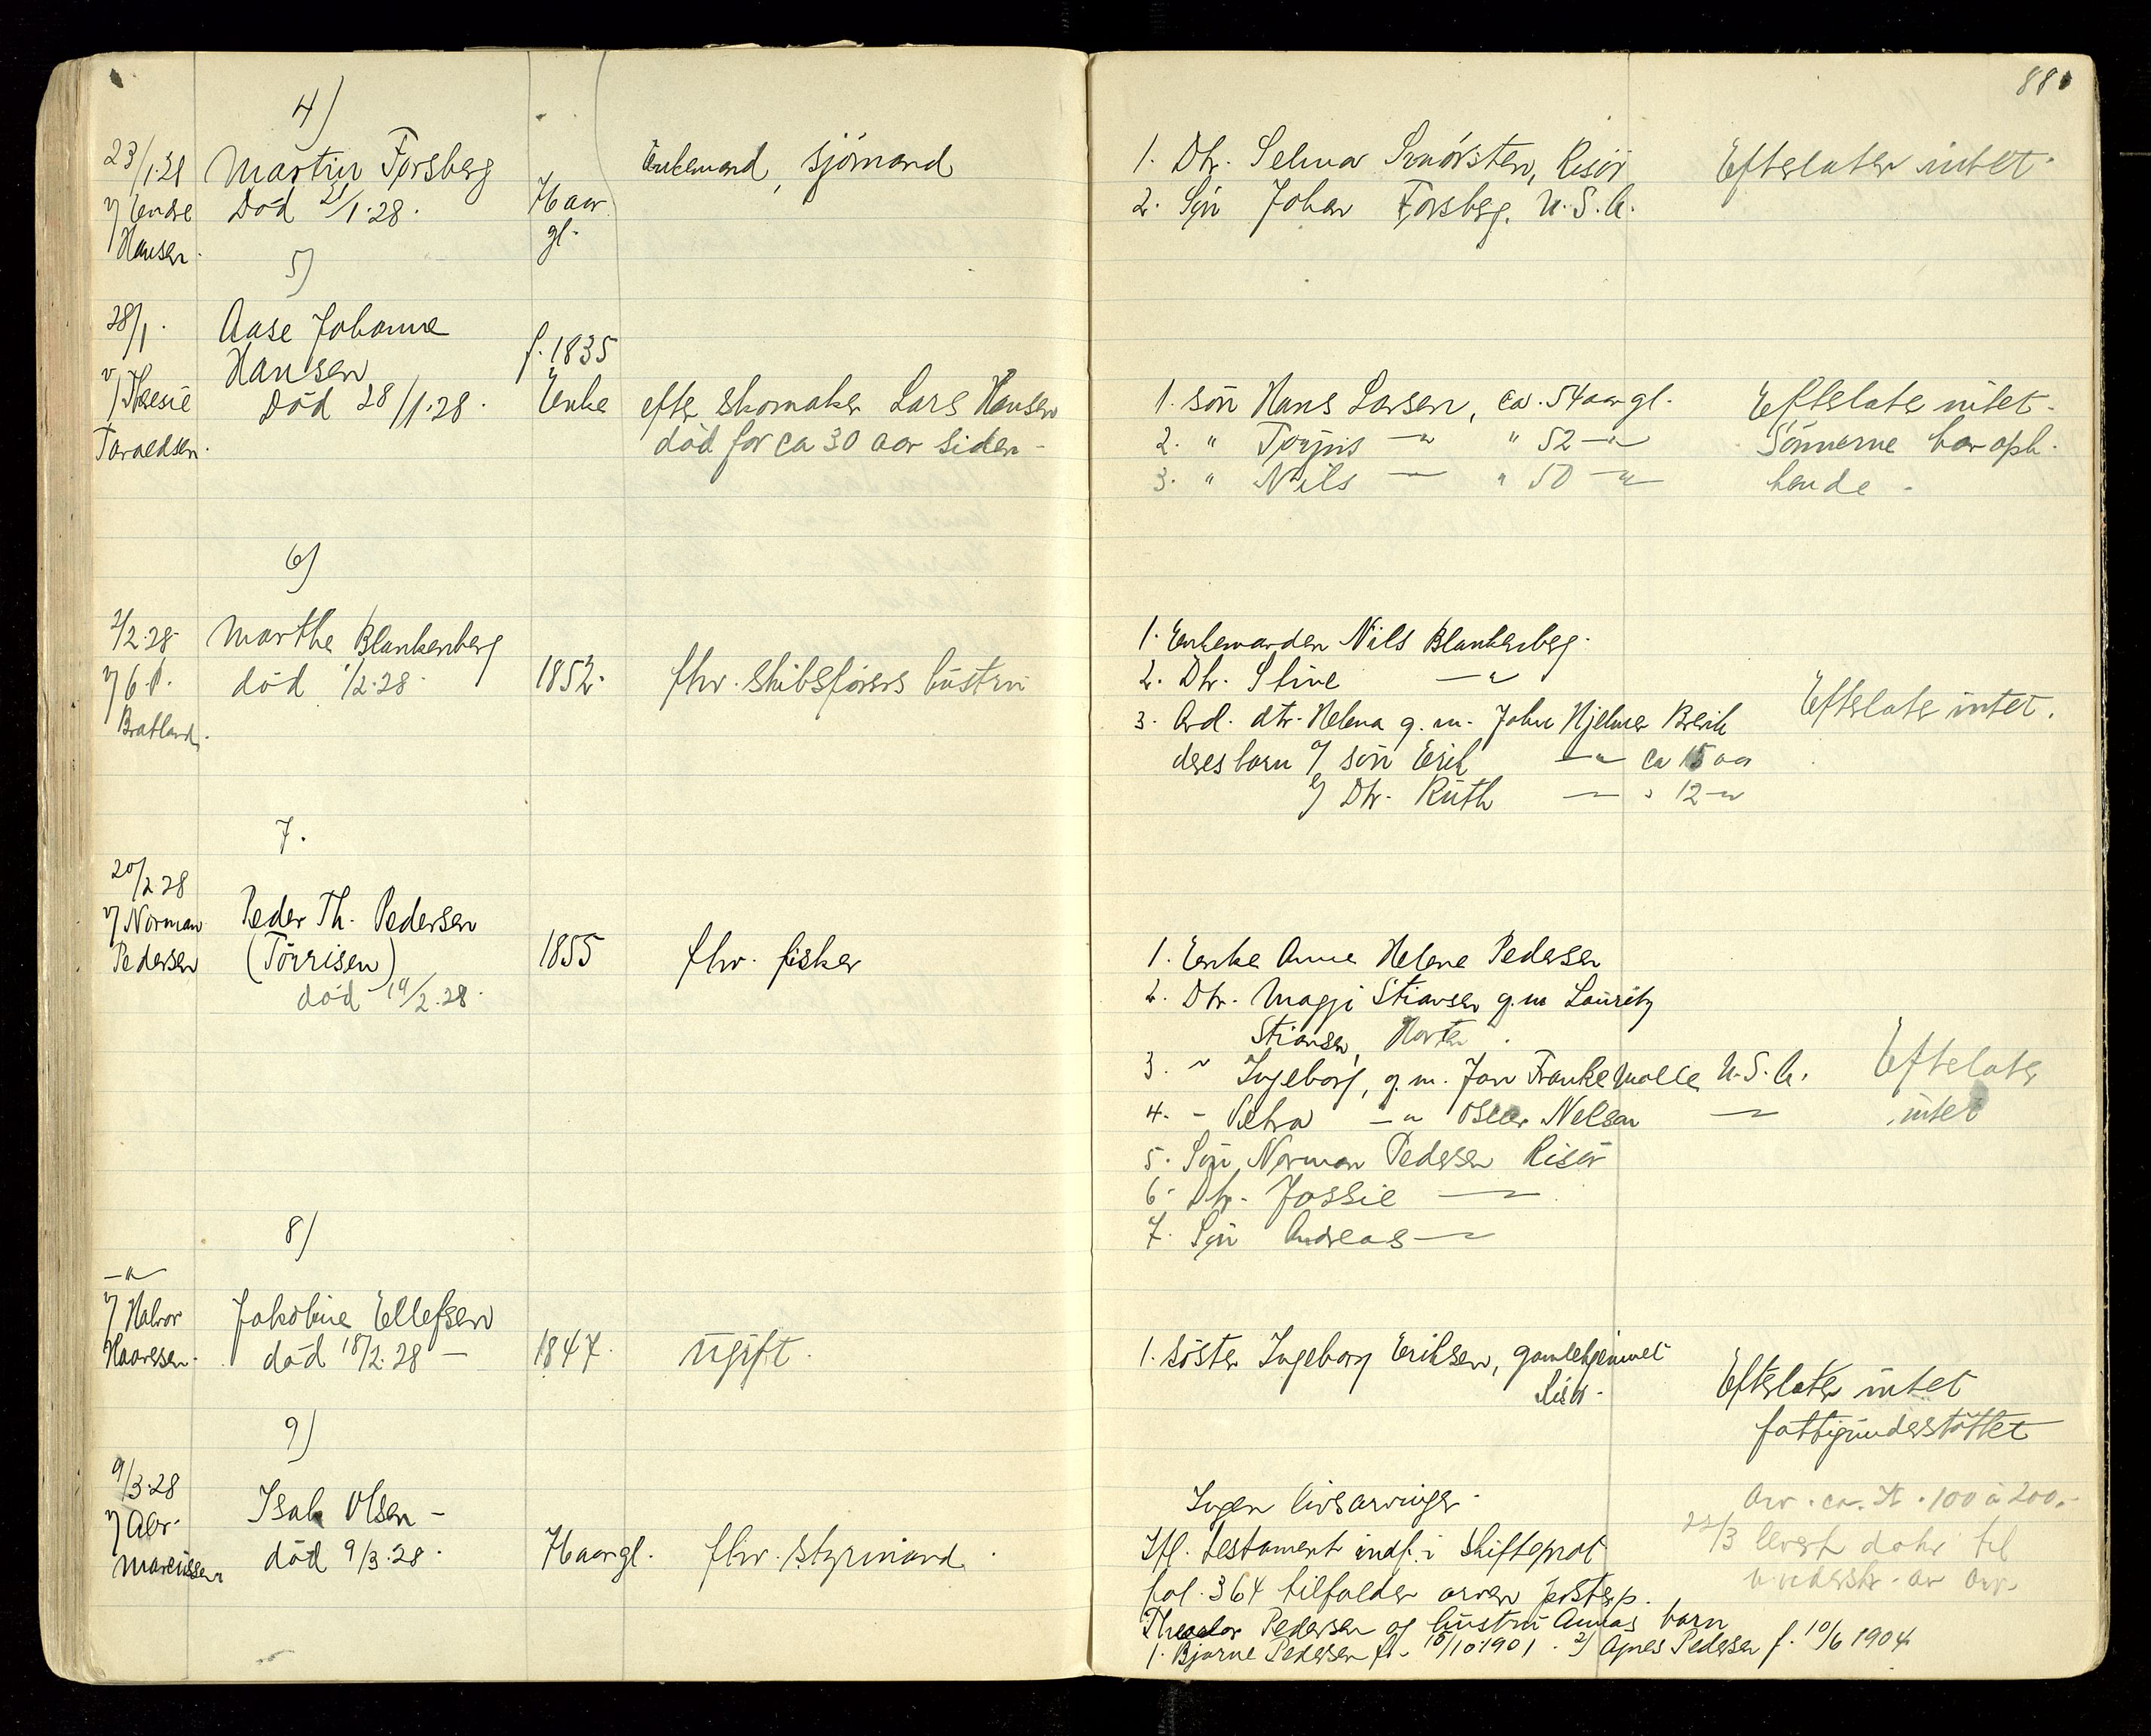 88
4)
23/1.28 Martin Forsberg Enkemand, sjömand 1. Dtr. Selma Smörsten, Risör Efterlater intet.
v/ Endre Död 21/1.28. 76 aar 2. Sön Johan Forsberg, U.S.A.
Hansen. gl.
5)
28/1. Aase Johanne
Hansen f. 1835
v/ Theresie Död 28/1.28. Enke efter skomaker Lars Hansen 1. sön Hans Larsen, ca. 54 aar gl. Efterlater intet.
Taraldsen. död for ca 30 aar siden - 2. " Torjus -"- " 52 -"- Sönnerne har oph.
3. " Nils -"- " 50 -"- hende -
6)
2/2.28 Marthe Blankenberg 1. Enkemanden Nils Blankenberg.
v/ död 1/2.28. 1852. fhv. skibsförers hustru 2. Dtr. Stine -"- Efterlater intet.
Bratland. 3. Avd. dtr. Helena g.m. John Hjelmer
deres barn 1/ sön Erik -"- ca 15 aar
2/ Dtr. Ruth -"- " 12 -"-
7.
20/2.28
v/ Norman Peder Th. Pedersen
Pedersen (Törrisen) 1855 fhv. fisker 1. Enke Anne Helene Pedersen
död 19/2.28. 2. Dtr. Magji Stiansen g.m. Lauritz
Stiansen, Horten
3. " Ingeborg, g.m. Jan U.S.A. Efterlater
4. - Petra -"- Nelsen -"- intet
5. Sön Norman Pedersen Risör
6. Dtr. Jossie -"-
7. Sön Andreas -"-
8)
-"-
v/ Halvor Jakobine Ellefsen
död 18/2.28 - 1847. ugift. 1. söster Ingeborg Eriksen, gamlehjemmet
Risör. Efterlater intet
fattigunderstöttet
9)
9/3.28 Isak Olsen - Ingen livsarvinger. Arv. ca. kr. 100 à 200.-
v/ Abr. död 9/3.28. 76 aar gl. fhv. styrmand. Ifl. testament indf. i skifteprot 22/3 levert dokr til
Marcussen fol. 364 tilfalder arven
Theodor Pedersen og hustru Annas barn
1. Bjarne Pedersen f. 15/10 1901. 2) Agnes Pedersen f. 10/6 1904